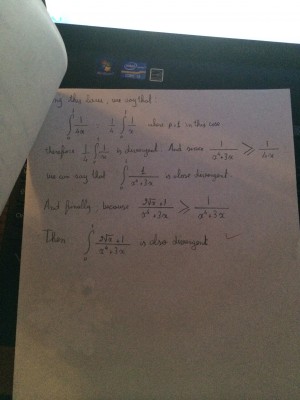 this time, we say that
∫₀¹ 1/4x = 1/4 ∫₀¹ 1/x when p=1 in this case
therefore 1/4 ∫₀¹ 1/x is divergent. And since 1/(x⁴+3x) ⩾ 1/4x
we can say that ∫₀¹ 1/(x⁴+3x) is also divergent.
And finally, because (2√x+1)/(x⁴+3x) ⩾ 1/(x⁴+3x)
Then ∫₀¹ (2√x+1)/(x⁴+3x) is also divergent ✓